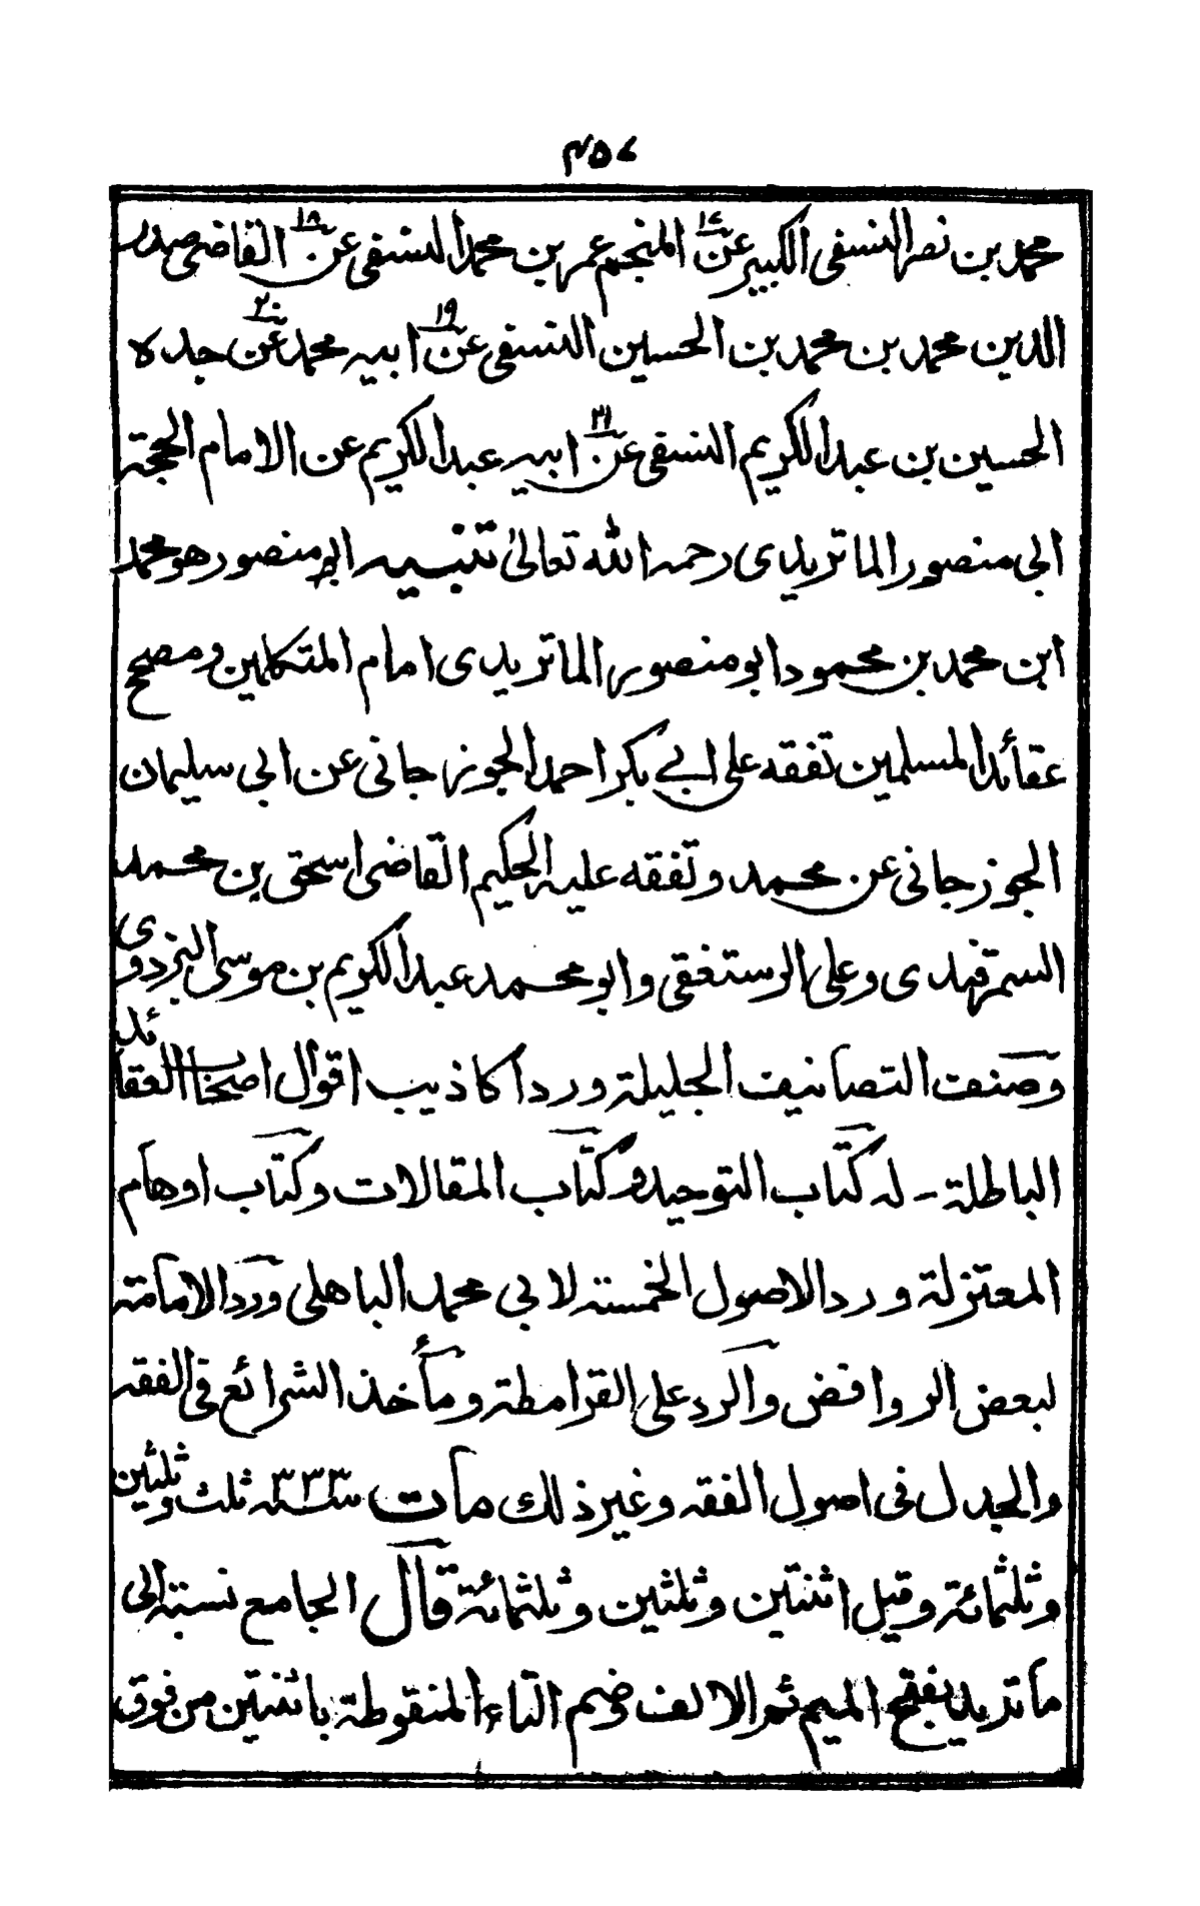 ٤٥٧
محمد بن نصر النسفى الكبير عن ١٧ المنجم عمر بن محمد النسفى عن ١٨ القاضى صدر
الدين محمد بن محمد بن الحسين النسفى عن ١٩ ابيه محمد عن ٢٠ جده
الحسين بن عبد الكريم النسفى عن ٢١ ابيه عبد الكريم عن الامام الحجة
ابى منصور الماتريدى رحمه الله تعالىٰ تنبيه ابو منصور هو محمد
ابن محمد بن محمود ابو منصور الماتريدى امام المتكلمين ومصحح
عقائد المسلمين تفقه على ابے بكر احمد الجوزجانى عن ابى سليمان
الجوزجانى عن محمد وتفقه عليه الحكيم القاضى اسحٰق بن محمد
السمرقندى وعلى الرستغفى وابو محمد عبد الكريم بن موسى البزدوى
وصنف التصانيف الجليلة ورد اكاذيب اقوال اصحاب العقائد
الباطلة - له كتاب التوحيد وكتاب المقالات وكتاب اوهام
المعتزلة ورد الاصول الخمسته لابي محمد الباهلى ورد الامامته
لبعض الروافض والرد على القرامطة ومأخذ الشرائع فى الفقه
والجدل فى اصول الفقه وغير ذلك مات سنه ٣٣٣ ثلث وثلثين
وثلثمائة وقيل اثنتين وثلثين وثلثمائة قال الجامع نسبته الى
ماتريد بفتح الميم ثم الالف وضم التاء المنقوطة باثنتين من فوق